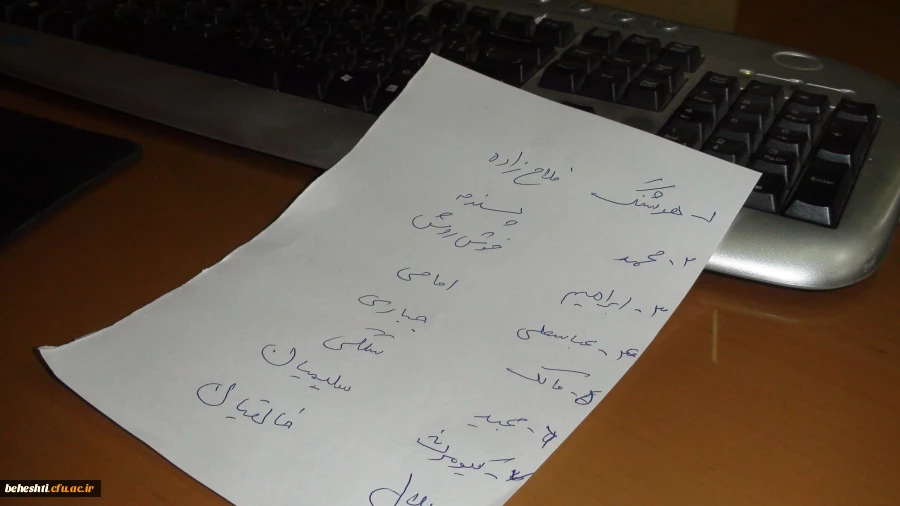 ۱- هوشنگ فلاح زاده
۲- محمد پسندیده
۳- ابراهیم خوش روش
۴- عباسعلی امامی
۵- مالک جباری
۶- مجید سنگی
۷- کیومرث سلیمیان
خالقیان
beheshti.cfu.ac.ir